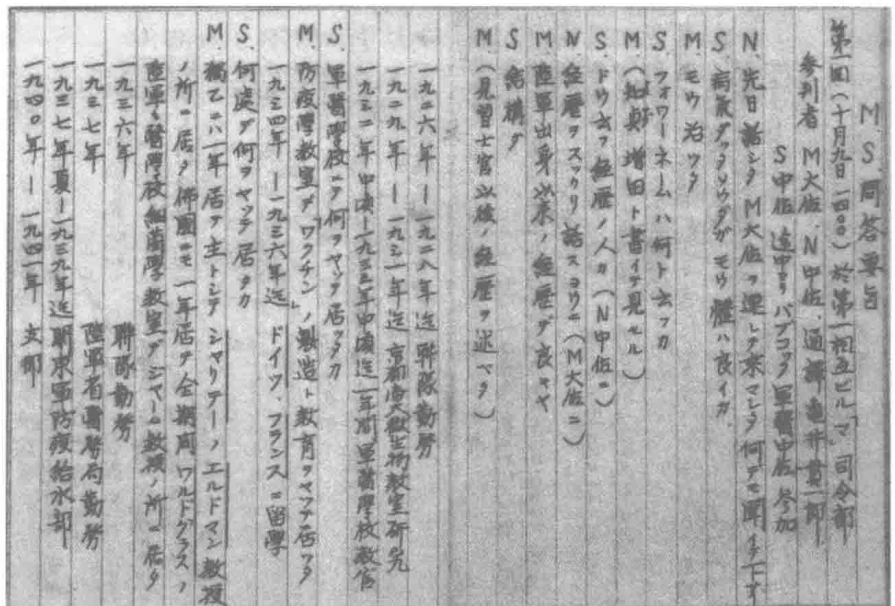 M.S.問答要旨
第一回(十月九日一四〇〇)於第一相互ビル「マ」司令部
参列者 M大佐、N中佐、通譯亀井貫一郎
S中佐 途中ヨリバブコック軍醫中佐参加
N. 先日話シタM大佐ヲ連レテ来マシタ何デモ聞イテ下サイ
S. 病気ダッタソウダガモウ體ハ良イカ
M モウ治ッタ
S. フォワーネームハ何ト云フカ
M (知貞増田ト書イテ見セル)
S. ドウ云フ経歴ノ人カ(N中佐ニ)
N 経歴ヲスッカリ話スヨウニ(M大佐ニ)
M 陸軍出身以来ノ経歴デ良キヤ
S 結構ダ
M (見習士官以後ノ経歴ヲ述ベタ)
一九二六年ー一九二八年迄 聯隊勤務
一九二九年ー一九三一年迄 京都帝大微生物教室研究
一九三二年中頃ー一九三三年中頃迄一年間軍醫學校教官
S. 軍醫學校ニテ何ヲヤッテ居ッタカ
M. 防疫學教室デ「ワクチン」ノ製造ト教育ヲヤッテ居ッタ
一九三四年ー一九三六年迄 ドイツ、フランスニ留學
S. 何處デ何ヲヤッテ居タカ
M. 獨乙ニハ一年居テ主トシテシャリテーノエルドマン教授
ノ所ニ居タ 佛國ニモ一年居テ全期間ワルドグラスノ
陸軍々醫學校細菌學教室デジャーム教授ノ所ニ居タ
一九三六年 聯隊勤務
一九三七年 陸軍省醫務局勤務
一九三七年夏ー一九三九年迄 関東軍防疫給水部
一九四〇年ー一九四一年 支那